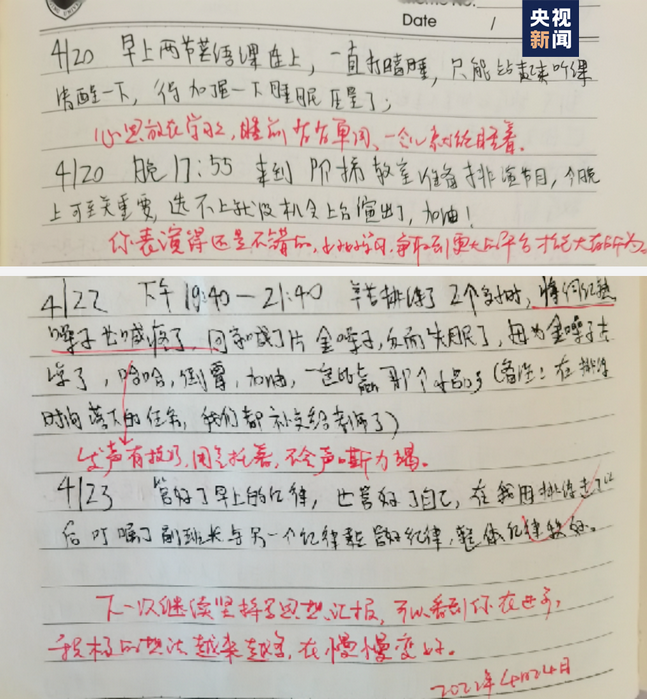 Date /
央视
新闻
4/20 早上两节英语课连上，一直打瞌睡，只能站起来听课
清醒一下，得加强一下睡眠质量了；
心思放在学习上，睡前，一会儿就睡着。
4/20 晚17:55 来到阶梯教室准备排演节目，今晚
上可至关重要，选不上就没机会上台演出了，加油！
你表演得还是不错的，争取到更大的平台才能大有所为。
4/22 下午19:40—21:40 辛苦排练了2个小时，
嗓子也喊疼了，回家喊了片金嗓子，反而失眠了，因为金嗓子太
凉了，哈哈，倒霉，加油，一定能赢那个小品的（备注：在排练
时间落下的任务，我们都补交给老师了）
发声有技巧，用气托着，不会声嘶力竭。
4/23 管好了早上的纪律，也管好了自己，在我去了以
后叮嘱了副班长与另一个纪律委管好纪律，整体纪律较好。
下一次继续坚持写思想汇报，可以看到你在进步，
积极的想法越来越多，在慢慢变好。
2022年4月24日